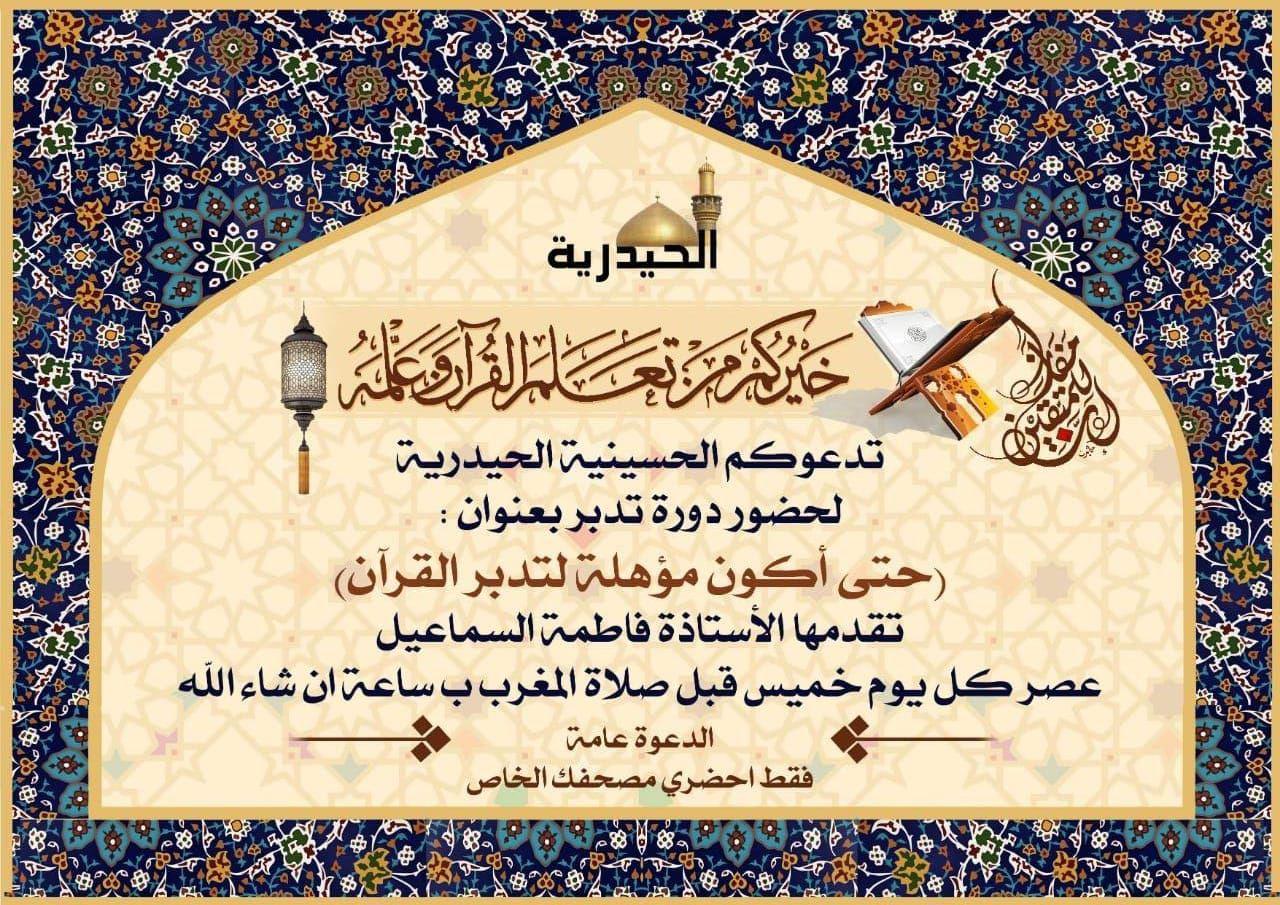 الحيدرية
خَيْرُكُم مَنْ تَعَلَّمَ القُرآنَ وَعَلَّمَهُ
تدعوكم الحسينية الحيدرية
لحضور دورة تدبر بعنوان :
(حتى أكون مؤهلة لتدبر القرآن)
تقدمها الأستاذة فاطمة السماعيل
عصر كل يوم خميس قبل صلاة المغرب ب ساعة ان شاء الله
الدعوة عامة
فقط احضري مصحفك الخاص